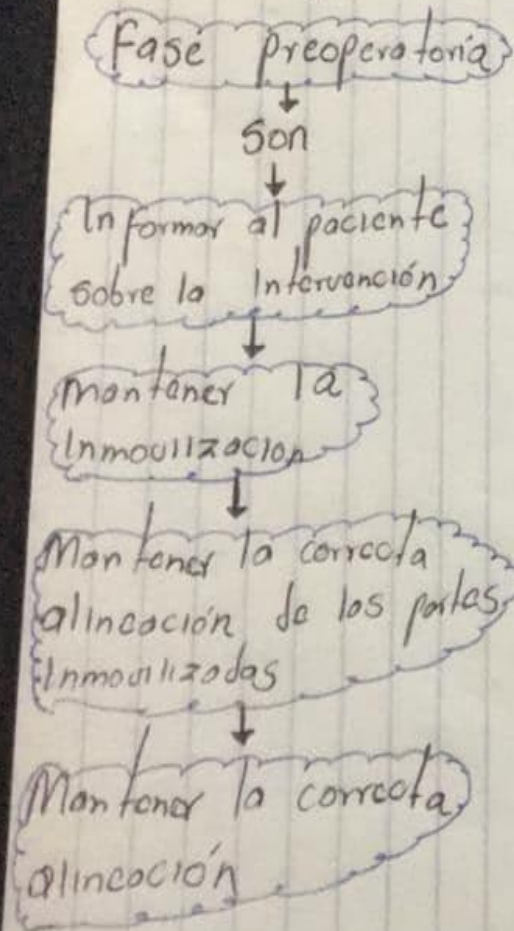 Fase preoperatoria
Son
Informar al paciente
sobre la Intervención
mantener la
Inmovilizacion
Mantener la correcta
alineación de las partes
Inmovilizadas
Mantener la correcta
alineación